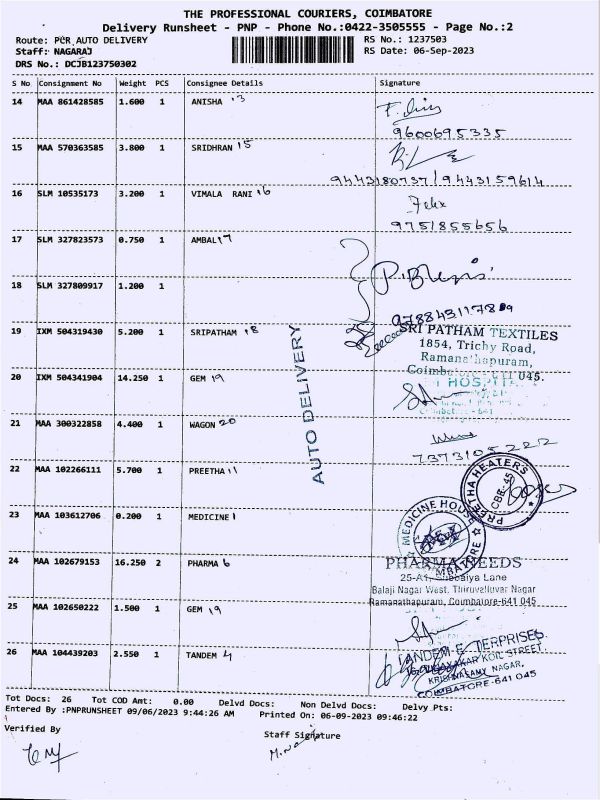 THE PROFESSIONAL COURIERS, COIMBATORE
Delivery Runsheet - PNP - Phone No.:0422-3505555 - Page No.:2
Route: PCR AUTO DELIVERY
RS No.: 1237503
Staff: NAGARAJ
RS Date: 06-Sep-2023
DRS No.: DCJB123750302
S No Consignment No Weight PCS Consignee Details Signature
14 MAA 861428585 1.600 1 ANISHA 13
9600695335
15 MAA 570363585 3.800 1 SRIDHRAN 15
9443180737/9443159614
16 SLM 10535173 3.200 1 VIMALA RANI 16
Felix
9751855656
17 SLM 327823573 0.750 1 AMBAL 17
18 SLM 327809917 1.200 1
19 IXM 504319430 5.200 1 SRIPATHAM 18
SRI PATHAM TEXTILES
1854, Trichy Road,
Ramanathapuram,
Coimbatore - 641 045.
20 IXM 504341904 14.250 1 GEM 19
AUTO DELIVERY
21 MAA 300322858 4.400 1 WAGON 20
7373105222
22 MAA 102266111 5.700 1 PREETHA 11
PREETHA HEATERS
CBE-45
23 MAA 103612706 0.200 1 MEDICINE 1
MEDICINE HOUSE
24 MAA 102679153 16.250 2 PHARMA 6
PHARMA NEEDS
25-A1, Lane
Balaji Nagar West, Thiruvalluvar Nagar
Ramanathapuram, Coimbatore-641 045
25 MAA 102650222 1.500 1 GEM 19
26 MAA 104439203 2.550 1 TANDEM 4
TANDEM ENTERPRISES
KOIL STREET,
KRISHNASAMY NAGAR,
COIMBATORE-641 045
Tot Docs: 26 Tot COD Amt: 0.00 Delvd Docs: Non Delvd Docs: Delvy Pts:
Entered By :PNPRUNSHEET 09/06/2023 9:44:26 AM Printed On: 06-09-2023 09:46:22
Verified By
Staff Signature